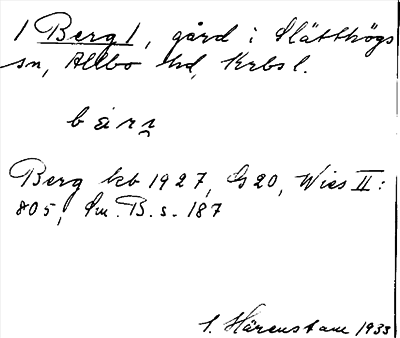 / Berg /, gård i Slätthögs
sn, Allbo hd, Krbs l.
bärj
Berg kb 1927, G 20, Wies II:
805, Sm. B. s. 187
S. Härenstam 1933